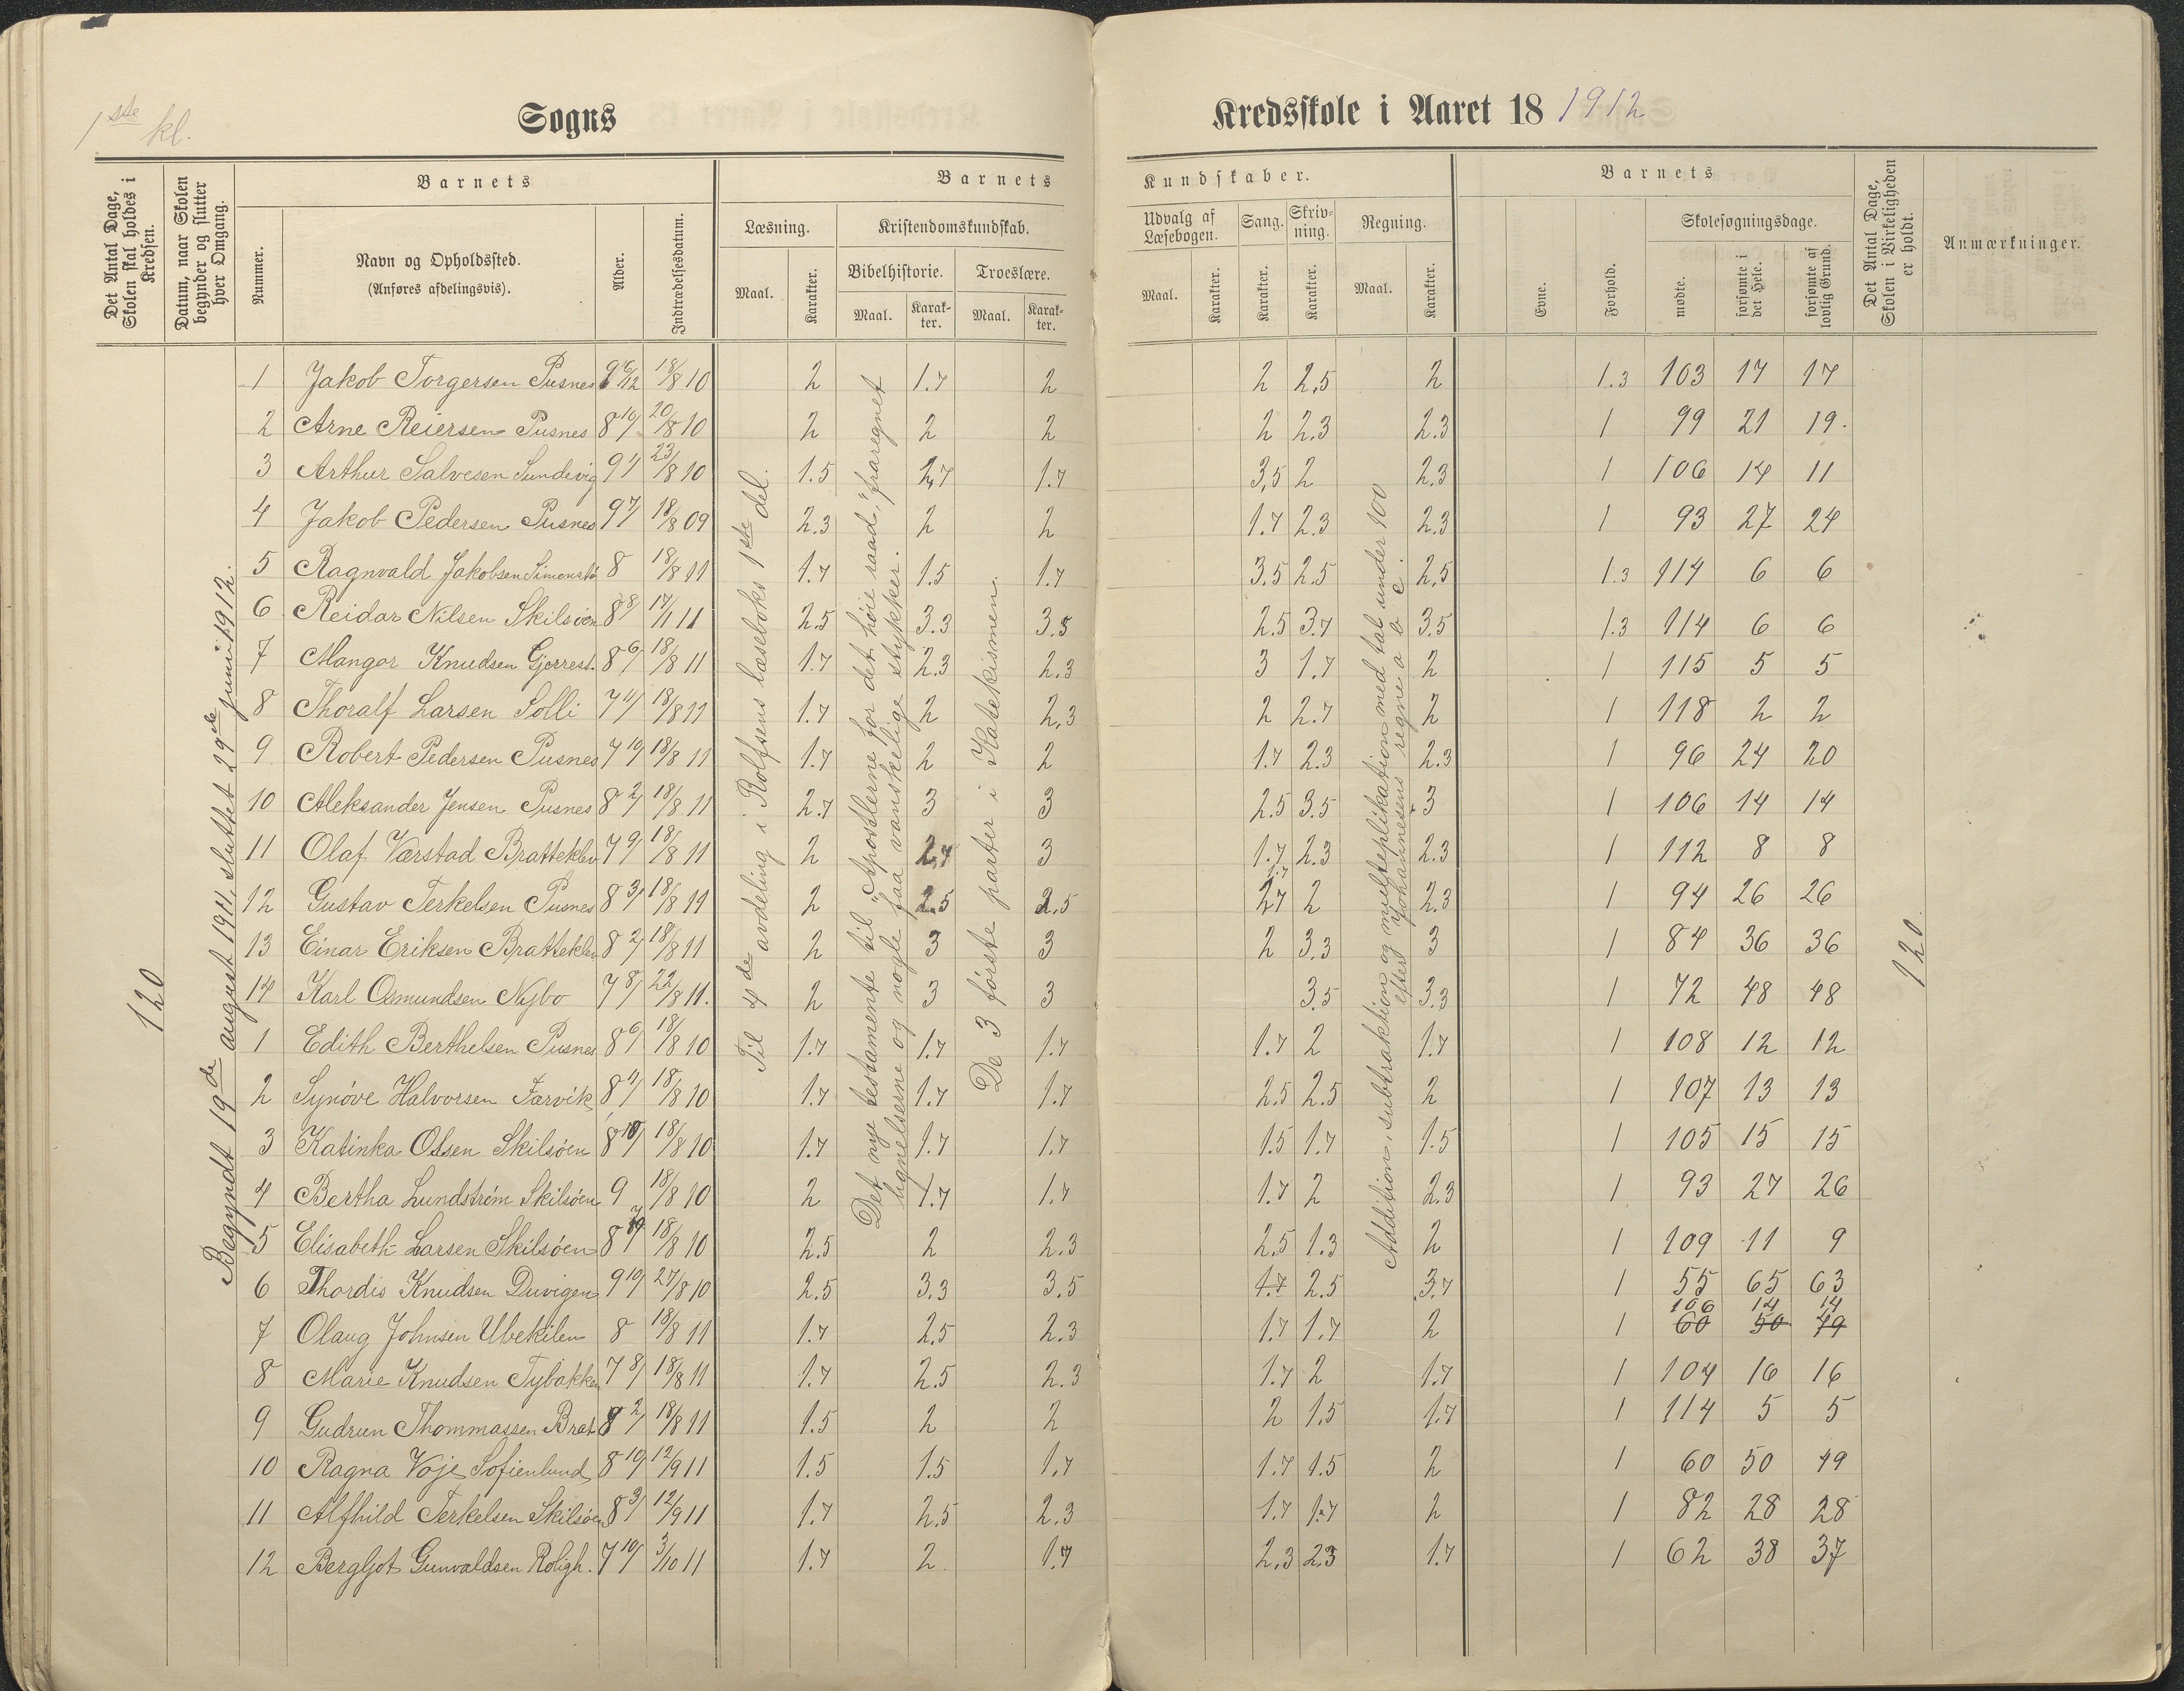 1ste kl.
Sogns
Kredsskole i Aaret 18 1912
Det Antal Dage, Skolen skal holdes i Kredsen.
Datum, naar Skolen begynder og slutter hver Omgang.
Barnets
Nummer.
Navn og Opholdssted.
(Anføres afdelingsvis).
Alder.
Indtrædelsesdatum.
Barnets
Læsning.
Maal.
Karakter.
Kristendomskundskab.
Bibelhistorie.
Maal.
Karakter.
Troeslære.
Maal.
Karakter.
Kundskaber.
Udvalg af Læsebogen.
Maal.
Karakter.
Sang.
Karakter.
Skrivning.
Karakter.
Regning.
Maal.
Karakter.
Barnets
Evne.
Forhold.
Skolesøgningsdage.
mødte.
forsømte i det Hele.
forsømte af lovlig Grund.
Det Antal Dage, Skolen i Virkeligheden er holdt.
Anmærkninger.
120
Begyndt 19de august 1911, sluttet 29de juni 1912.
Til 4de avdeling i Rolfsens læseboks 1ste del.
Det nye testamente til "Apostlerne for det høie raad," fraregnet
lignelserne og nogle faa vanskelige stykker.
De 3 første parter i Katekismen.
Addition, subtraktion og multeplikation med tal under 100
efter Johannesens regne a b c.
120
1 Jakob Torgersen Pusnes 9 6/12 18/8 10 2 1.7 2 2 2.5 2 1.3 103 17 17
2 Arne Reiersen Pusnes 8 10/ 20/8 10 2 2 2 2 2.3 2.3 1 99 21 19.
3 Arthur Salvesen Sundevig 9 1/ 23/8 10 1.5 2,7 1.7 3,5 2 2.3 1 106 14 11
4 Jakob Pedersen Pusnes 9 7/ 18/8 09 2.3 2 2 1.7 2.3 2.3 1 93 27 24
5 Ragnvald Jakobsen Simonstø 8 18/8 11 1.7 1.5 1.7 3.5 2.5 2,5 1.3 114 6 6
6 Reidar Nilsen Skilsøen 8 8/ 17/1 11 2.5 3.3 3.5 2.5 3.7 3.5 1.3 114 6 6
7 Mangor Knudsen Gjerrest. 8 6/ 18/8 11 1.7 2.3 2.3 3 1.7 2 1 115 5 5
8 Thoralf Larsen Solli 7 11/ 18/8 11 1.7 2 2,3 2 2.7 2 1 118 2 2
9 Robert Pedersen Pusnes 7 10/ 18/8 11 1.7 2 2 1.7 2.3 2.3 1 96 24 20
10 Aleksander Jensen Pusnes 8 2/ 18/8 11 2.7 3 3 2.5 3.5 3 1 106 14 14
11 Olaf Værstad Bratteklev 7 9/ 18/8 11 2 2,7 3 1.7 2.3 2.3 1 112 8 8
12 Gustav Terkelsen Pusnes 8 3/ 18/8 11 2 2.5 2.5 1.7 2 2.3 1 94 26 26
13 Einar Eriksen Bratteklev 8 2/ 18/8 11 2 3 3 2 3.3 3 1 84 36 36
14 Karl Osmundsen Nybo 7 8/ 22/8 11. 2 3 3 3.5 3.3 1 72 48 48
1 Edith Berthelsen Pusnes 8 6/ 18/8 10 1.7 1.7 1.7 1.7 2 1.7 1 108 12 12
2 Synøve Halvorsen Færvik 8 11/ 18/8 10 1.7 1.7 1.7 2.5 2.5 2 1 107 13 13
3 Katinka Olsen Skilsøen 8 10/ 18/8 10 1.7 1.7 1.7 1.5 1.7 1.5 1 105 15 15
4 Bertha Lundstrøm Skilsøen 9 18/8 10 2 1.7 1.7 1.7 2 2.3 1 93 27 26
5 Elisabeth Larsen Skilsøen 8 7/ 18/8 10 2.5 2 2.3 2.5 1.3 2 1 109 11 9
6 Thordis Knudsen Duvigen 9 10/ 27/8 10 2.5 3.3 3.5 1.7 2.5 3.7 1 55 65 63
7 Olaug Johnsen Ubekilen 8 18/8 11 1.7 2.5 2.3 1.7 1.7 2 1 106 14 14
60 50 49
8 Marie Knudsen Tybakken 7 8/ 18/8 11 1.7 2.5 2.3 1.7 2 1.7 1 104 16 16
9 Gudrun Thommassen Brat 8 2/ 18/8 11 1.5 2 2 2 1.5 1.7 1 114 5 5
10 Ragna Voje Sofienlund 8 10/ 12/9 11 1.5 1.5 1.7 1.7 1.5 2 1 60 50 49
11 Alfhild Terkelsen Skilsøen 8 3/ 12/9 11 1.7 2.5 2.3 1.7 1.7 2 1 82 28 28
12 Bergljot Gunvaldsen Roligh. 7 10/ 3/10 11 1.7 2 1.7 2.3 2.3 1.7 1 62 38 37